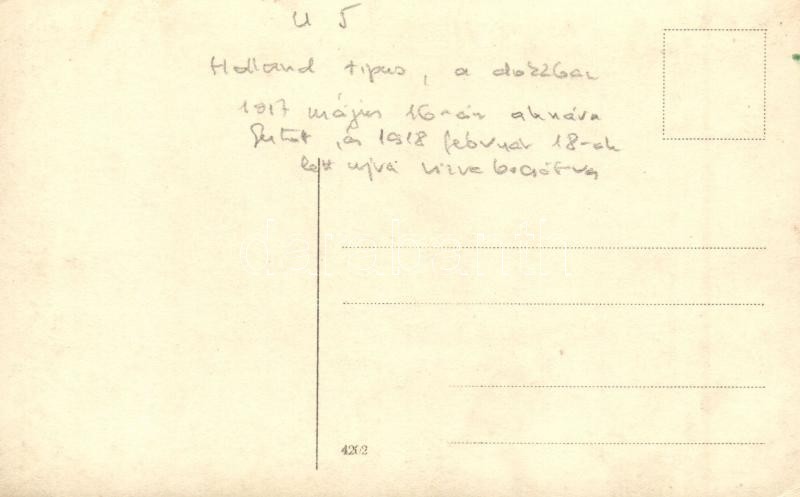 U 5
Holland tipus, a dokkban
1917 május 16-án aknára
futott, és 1918 február 18-ah
lett ujra vizre bocsátva
darabanth
4202